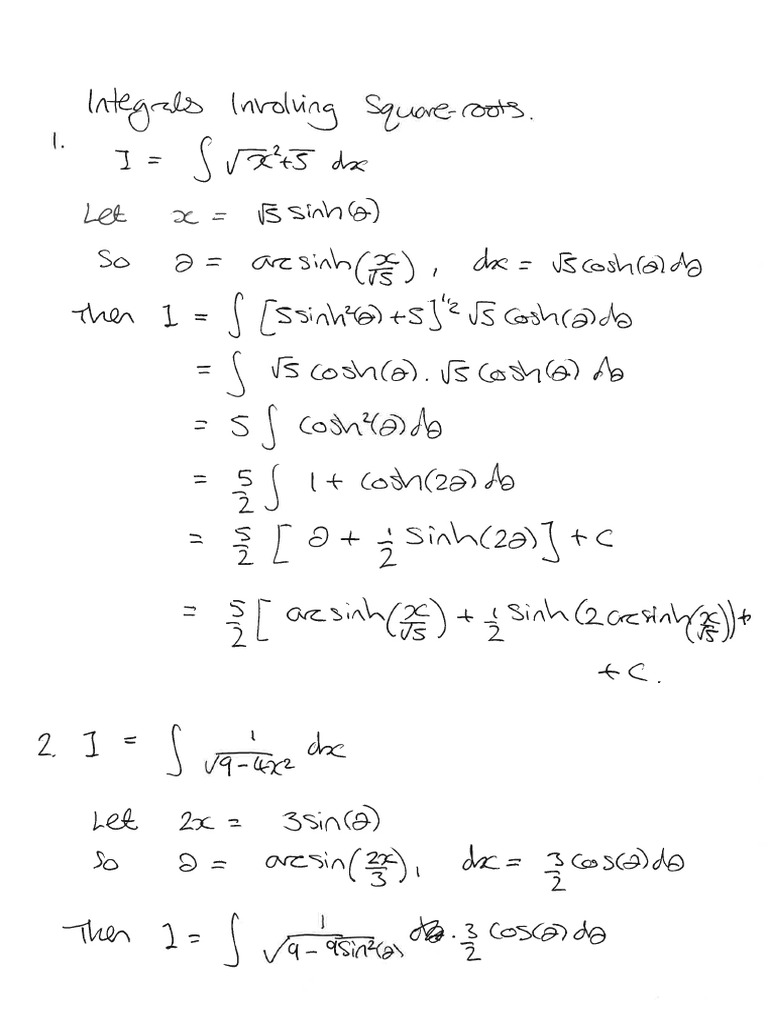 Integrals Involving Square-roots.
1. I = ∫ √x²+5 dx
Let x = √5 sinh(θ)
So θ = arcsinh(x/√5), dx = √5 cosh(θ)dθ
Then I = ∫ [5sinh²(θ)+5]^1/2 √5 cosh(θ)dθ
= ∫ √5 cosh(θ). √5 cosh(θ) dθ
= 5 ∫ cosh²(θ)dθ
= 5/2 ∫ 1 + cosh(2θ) dθ
= 5/2 [ θ + 1/2 sinh(2θ)] + C
= 5/2 [ arcsinh(x/√5) + 1/2 sinh(2arcsinh(x/√5)) +
+ C.
2. I = ∫ 1/√9-4x² dx
Let 2x = 3sin(θ)
So θ = arcsin(2x/3), dx = 3/2 cos(θ)dθ
Then I = ∫ 1/√9-9sin²(θ) . 3/2 cos(θ)dθ